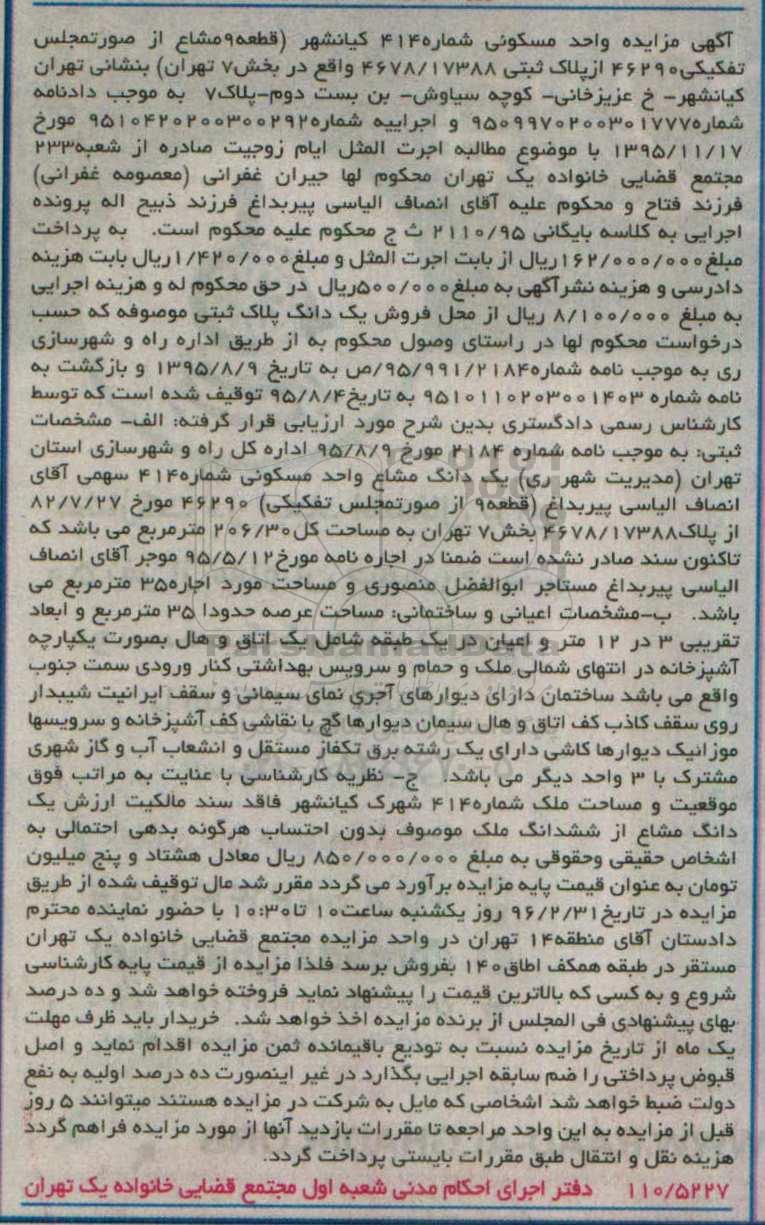 آگهی مزایده واحد مسکونی شماره۴۱۴ کیانشهر (قطعه۹مشاع از صورتمجلس
تفکیکی۴۶۲۹۰ ازپلاک ثبتی ۴۶۷۸/۱۷۳۸۸ واقع در بخش۷ تهران) بنشانی تهران
کیانشهر- خ عزیزخانی- کوچه سیاوش- بن بست دوم-پلاک۷ به موجب دادنامه
شماره۹۵۰۹۹۷۰۲۰۰۳۰۱۷۷۷ و اجراییه شماره۹۵۱۰۴۲۰۲۰۰۳۰۰۲۹۲ مورخ
۱۳۹۵/۱۱/۱۷ با موضوع مطالبه اجرت المثل ایام زوجیت صادره از شعبه۲۳۳
مجتمع قضایی خانواده یک تهران محکوم لها جیران غفرانی (معصومه غفرانی)
فرزند فتاح و محکوم علیه آقای انصاف الیاسی پیربداغ فرزند ذبیح اله پرونده
اجرایی به کلاسه بایگانی ۲۱۱۰/۹۵ ث ج محکوم علیه محکوم است. به پرداخت
مبلغ۱۶۲/۰۰۰/۰۰۰ریال از بابت اجرت المثل و مبلغ۱/۴۲۰/۰۰۰ریال بابت هزینه
دادرسی و هزینه نشرآگهی به مبلغ۵۰۰/۰۰۰ریال در حق محکوم له و هزینه اجرایی
به مبلغ ۸/۱۰۰/۰۰۰ ریال از محل فروش یک دانگ پلاک ثبتی موصوفه که حسب
درخواست محکوم لها در راستای وصول محکوم به از طریق اداره راه و شهرسازی
ری به موجب نامه شماره۹۵/۹۹۱/۲۱۸۴/ص به تاریخ ۱۳۹۵/۸/۹ و بازگشت به
نامه شماره ۹۵۱۰۱۱۰۲۰۳۰۰۱۴۰۳ به تاریخ۹۵/۸/۴ توقیف شده است که توسط
کارشناس رسمی دادگستری بدین شرح مورد ارزیابی قرار گرفته: الف- مشخصات
ثبتی: به موجب نامه شماره ۲۱۸۴ مورخ ۹۵/۸/۹ اداره کل راه و شهرسازی استان
تهران (مدیریت شهر ری) یک دانگ مشاع واحد مسکونی شماره۴۱۴ سهمی آقای
انصاف الیاسی پیربداغ (قطعه۹ از صورتمجلس تفکیکی) ۴۶۲۹۰ مورخ ۸۲/۷/۲۷
از پلاک۴۶۷۸/۱۷۳۸۸ بخش۷ تهران به مساحت کل۲۰۶/۳۰ مترمربع می باشد که
تاکنون سند صادر نشده است ضمنا در اجاره نامه مورخ۹۵/۵/۱۲ موجر آقای انصاف
الیاسی پیربداغ مستاجر ابوالفضل منصوری و مساحت مورد اجاره۳۵ مترمربع می
باشد. ب-مشخصات اعیانی و ساختمانی: مساحت عرصه حدودا ۳۵ مترمربع و ابعاد
تقریبی ۳ در ۱۲ متر و اعیان در یک طبقه شامل یک اتاق و هال بصورت یکپارچه
آشپزخانه در انتهای شمالی ملک و حمام و سرویس بهداشتی کنار ورودی سمت جنوب
واقع می باشد ساختمان دارای دیوارهای آجری نمای سیمانی و سقف ایرانیت شیبدار
روی سقف کاذب کف اتاق و هال سیمان دیوارها گچ با نقاشی کف آشپزخانه و سرویسها
موزائیک دیوارها کاشی دارای یک رشته برق تکفاز مستقل و انشعاب آب و گاز شهری
مشترک با ۳ واحد دیگر می باشد. ج- نظریه کارشناسی با عنایت به مراتب فوق
موقعیت و مساحت ملک شماره۴۱۴ شهرک کیانشهر فاقد سند مالکیت ارزش یک
دانگ مشاع از ششدانگ ملک موصوف بدون احتساب هرگونه بدهی احتمالی به
اشخاص حقیقی وحقوقی به مبلغ ۸۵۰/۰۰۰/۰۰۰ ریال معادل هشتاد و پنج میلیون
تومان به عنوان قیمت پایه مزایده برآورد می گردد مقرر شد مال توقیف شده از طریق
مزایده در تاریخ۹۶/۲/۳۱ روز یکشنبه ساعت۱۰ تا۱۰:۳۰ با حضور نماینده محترم
دادستان آقای منطقه۱۴ تهران در واحد مزایده مجتمع قضایی خانواده یک تهران
مستقر در طبقه همکف اطاق۱۴۰ بفروش برسد فلذا مزایده از قیمت پایه کارشناسی
شروع و به کسی که بالاترین قیمت را پیشنهاد نماید فروخته خواهد شد و ده درصد
بهای پیشنهادی فی المجلس از برنده مزایده اخذ خواهد شد. خریدار باید ظرف مهلت
یک ماه از تاریخ مزایده نسبت به تودیع باقیمانده ثمن مزایده اقدام نماید و اصل
قبوض پرداختی را ضم سابقه اجرایی بگذارد در غیر اینصورت ده درصد اولیه به نفع
دولت ضبط خواهد شد اشخاصی که مایل به شرکت در مزایده هستند میتوانند ۵ روز
قبل از مزایده به این واحد مراجعه تا مقررات بازدید آنها از مورد مزایده فراهم گردد
هزینه نقل و انتقال طبق مقررات بایستی پرداخت گردد.
۱۱۰/۵۲۲۷ دفتر اجرای احکام مدنی شعبه اول مجتمع قضایی خانواده یک تهران